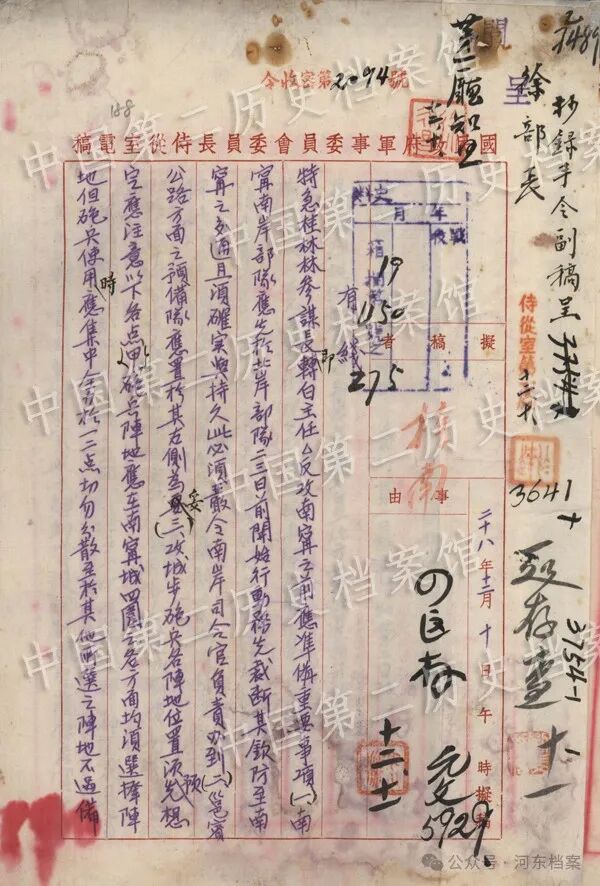 抄錄手令副稿呈
徐部長
呈
閱
侍從室第
3641
37541
存查
十一
令收密第2094號
188
國民政府軍事委員會委員長侍從室電稿
擬稿者
事由
桂南
二十八年十二月十日午時擬稿
四區存
十二、十一
5929
年月
19
1150
275
特急桂林林參謀長即轉白主任△反攻南寧之前應準備重要事項㈠南
寧南岸部隊應先於北岸部隊二三日前開始行動務先截斷其欽防至南
寧之交通且須確實與持久此必須嚴令南岸司令官負責辦到㈡邕賓
公路方面之預備隊應置於其左側為妥㈢攻城步砲兵各陣地位置須先預想
定應注意以下各点甲、砲兵陣地應在南寧城四圍之各方面均須選擇陣
地但砲兵使用時應集中主力於一二点切勿分散至於其他所選之陣地不過備
中国第二历史档案馆
公众号·河东档案